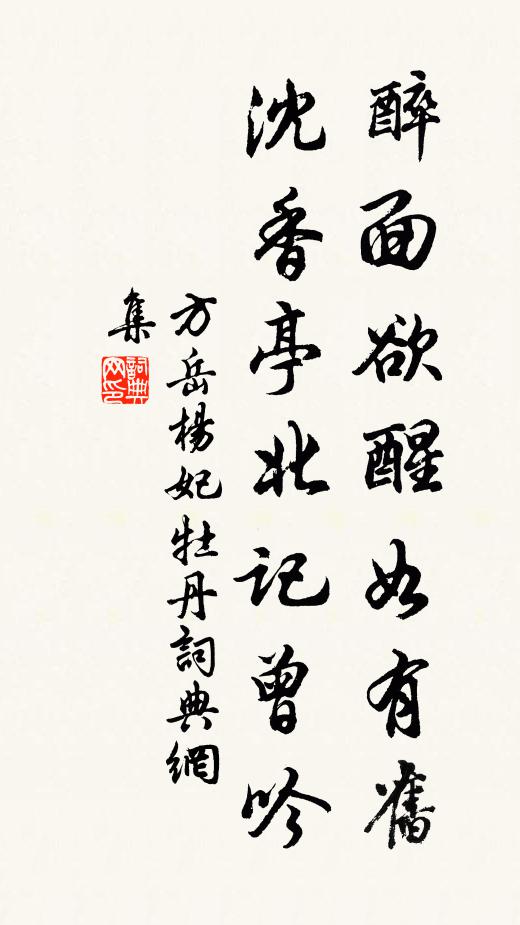 醉面欲醒如有舊
沈香亭北記曾吟
方岳楊妃牡丹詞典網
集
詞典網印